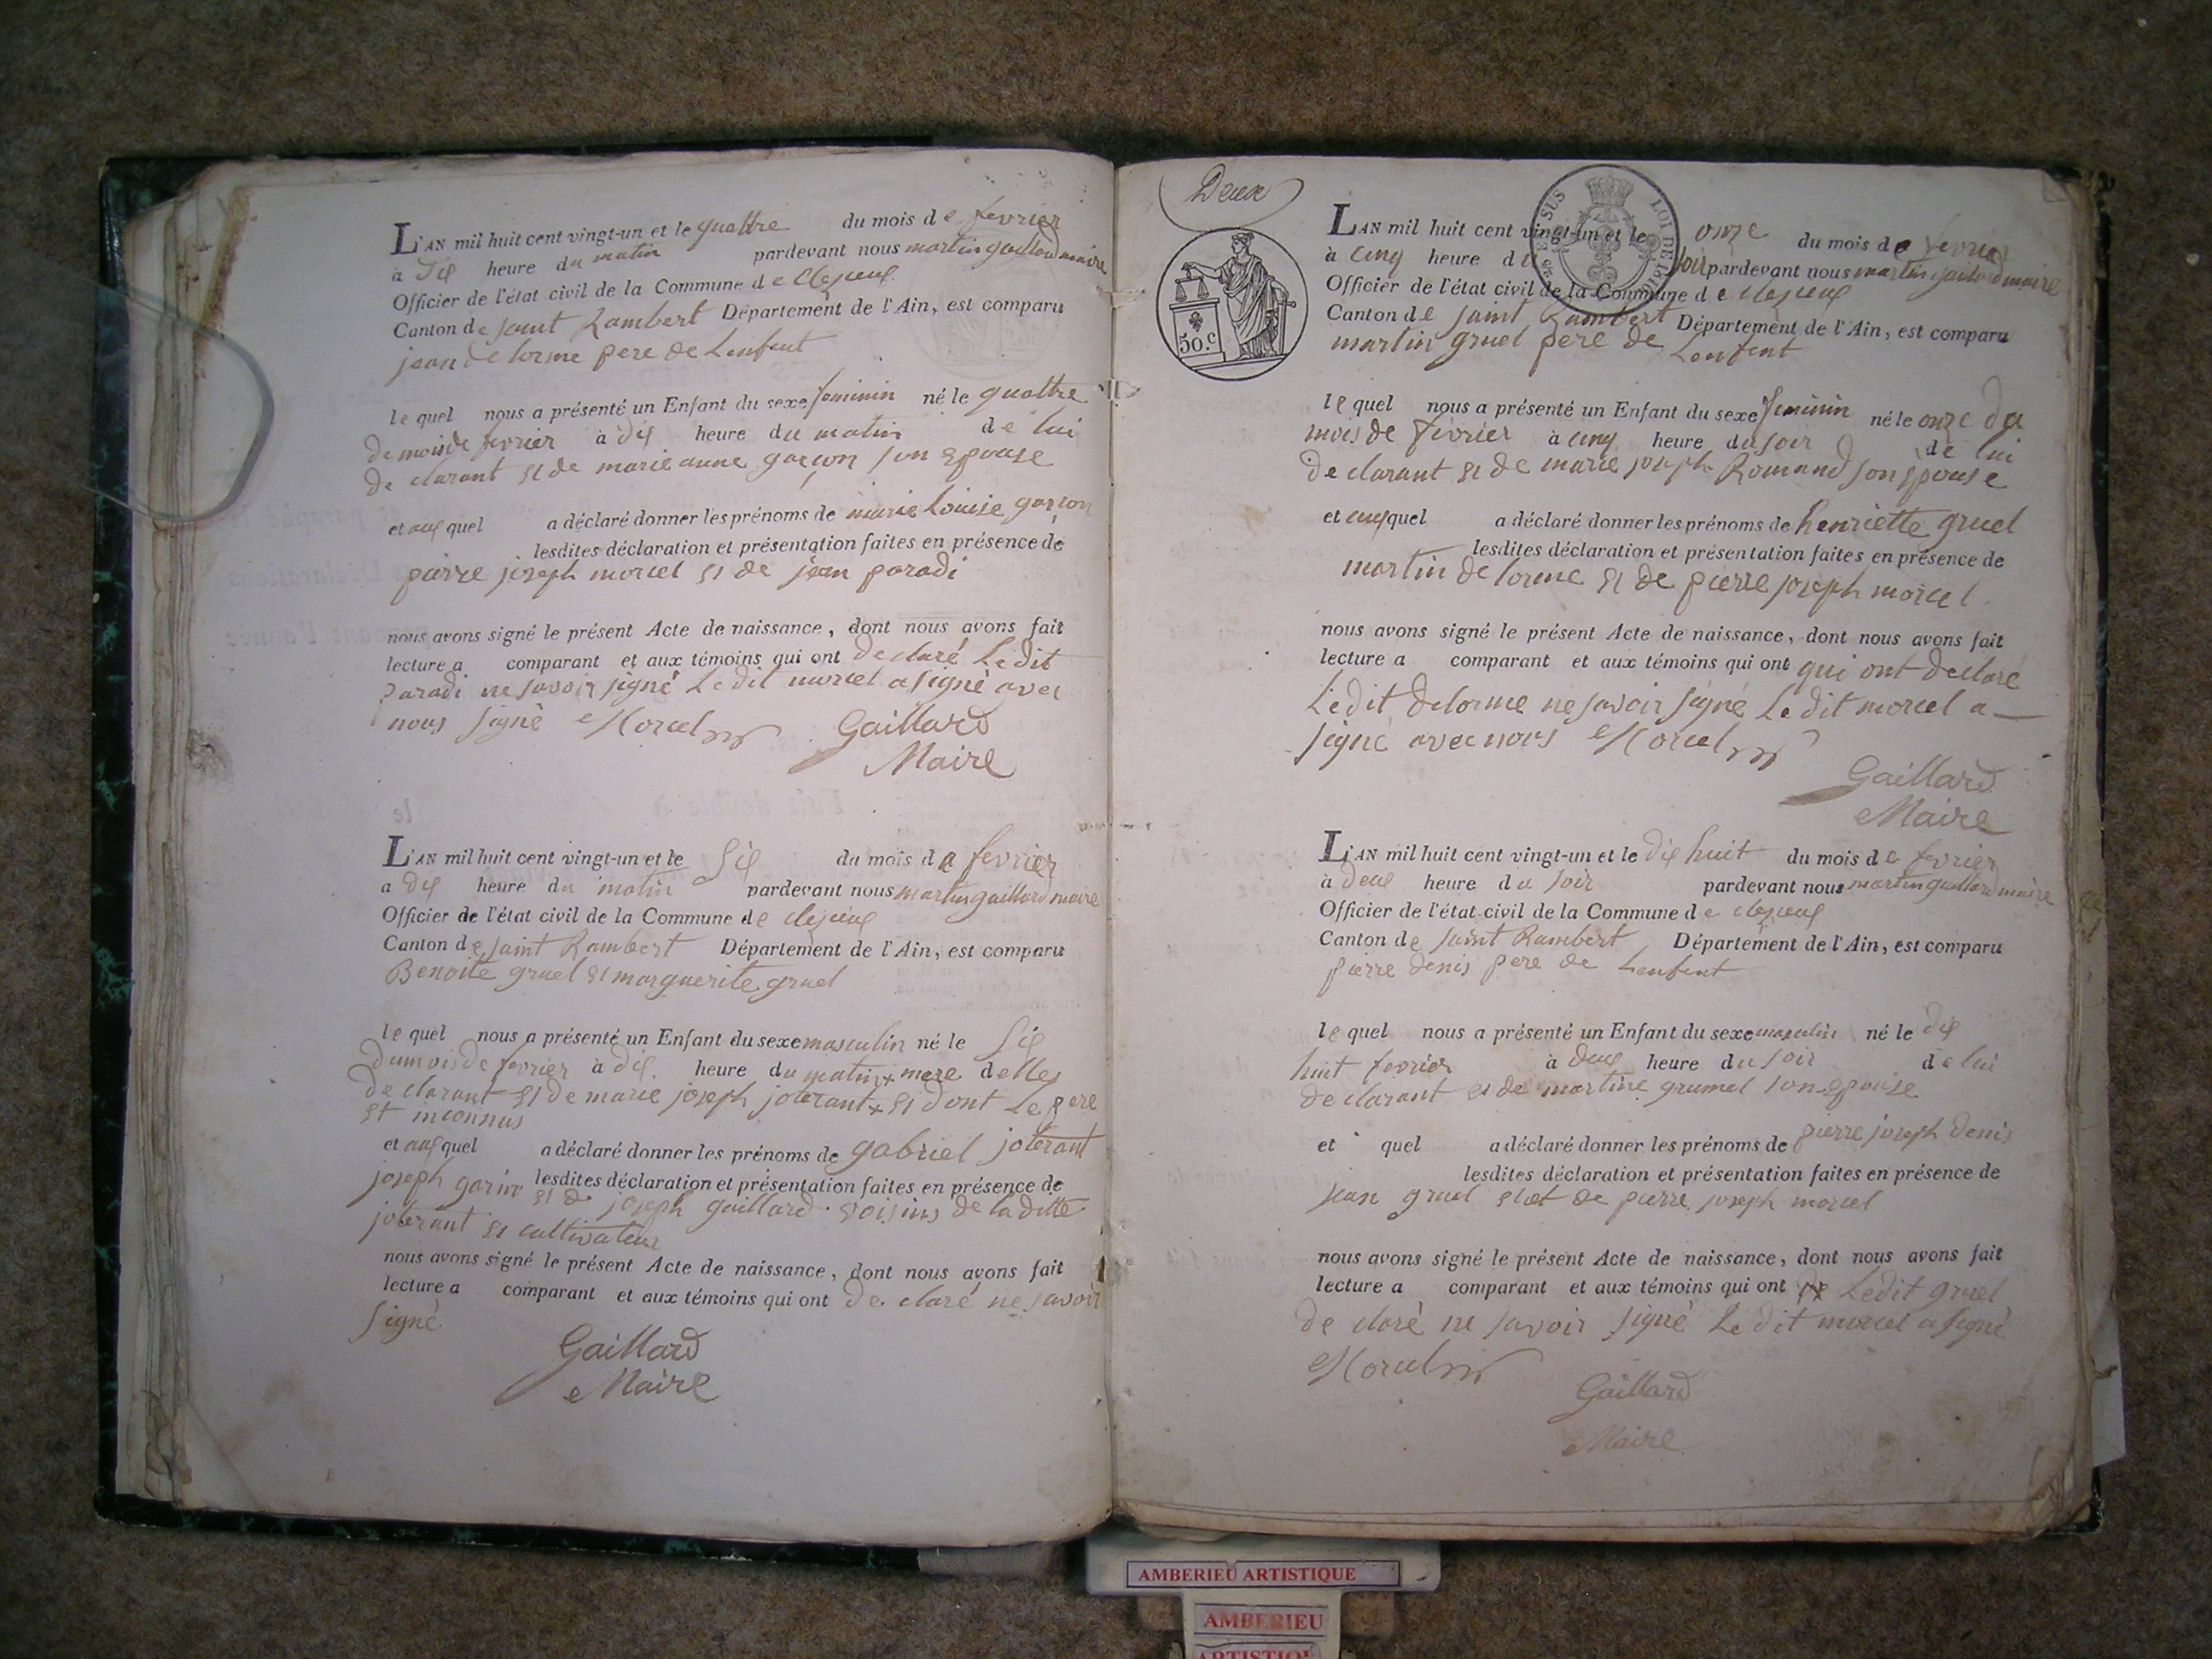 L'AN mil huit cent vingt-un et le quattre du mois de fevrier
à Dix heure du matin pardevant nous martin gaillard maire
Officier de l'état civil de la Commune de clezieux
Canton de saint Rambert Département de l'Ain, est comparu
jean de lorme pere de Lenfent
le quel nous a présenté un Enfant du sexe feminin né le quattre
du mois de fevrier à dix heure du matin de lui
de clarant et de marie anne garçon son epouse
et auxquel a déclaré donner les prénoms de marie louise garçon
lesdites déclaration et présentation faites en présence de
pierre joseph morcel et de jean paradi
nous avons signé le présent Acte de naissance, dont nous avons fait
lecture a comparant et aux témoins qui ont declaré Ledit
paradi ne savoir signé Le dit morcel a signé avec
nous signé Morcel Gaillard
Maire
L'AN mil huit cent vingt-un et le Six du mois de fevrier
a dix heure du matin pardevant nous martin gaillard maire
Officier de l'état civil de la Commune de clezieux
Canton de saint Rambert Département de l'Ain, est comparu
Benoite gruel et marguerite gruel
le quel nous a présenté un Enfant du sexe masculin né le Six
du mois de fevrier à dix heure du matin + mere delles
de clarant et de marie joseph joterant + et dont Le pere
et inconnus
et auxquel a déclaré donner les prénoms de gabriel joterant
joseph garin lesdites déclaration et présentation faites en présence de
et de joseph gaillard voisins de la ditte
joterant et cultivateur
nous avons signé le présent Acte de naissance, dont nous avons fait
lecture a comparant et aux témoins qui ont de claré ne savoir
signé
Gaillard
Maire
Deux
50.c
LOI DE
EN SUS
L'AN mil huit cent vingt-un et le onze du mois de fevrier
à cinq heure du soir pardevant nous martin gaillard maire
Officier de l'état civil de la Commune de clezieux
Canton de saint Rambert Département de l'Ain, est comparu
martin gruel pere de Lenfent
le quel nous a présenté un Enfant du sexe feminin né le onze du
mois de fevrier à cinq heure du soir de lui
de clarant et de marie joseph Romand son epouse
et auxquel a déclaré donner les prénoms de henriette gruel
lesdites déclaration et présentation faites en présence de
martin de lorme et de pierre joseph morcel
nous avons signé le présent Acte de naissance, dont nous avons fait
lecture a comparant et aux témoins qui ont qui ont declaré
Ledit delorme ne savoir signé Le dit morcel a
signé avec nous Morcel
Gaillard
Maire
L'AN mil huit cent vingt-un et le dix huit du mois de fevrier
à deux heure du soir pardevant nous martin gaillard maire
Officier de l'état civil de la Commune de clezieux
Canton de saint Rambert Département de l'Ain, est comparu
pierre denis pere de Lenfent
le quel nous a présenté un Enfant du sexe masculin né le dix
huit fevrier à deux heure du soir de lui
de clarant et de martine grumel son epouse
et quel a déclaré donner les prénoms de pierre joseph denis
lesdites déclaration et présentation faites en présence de
jean gruel et de pierre joseph morcel
nous avons signé le présent Acte de naissance, dont nous avons fait
lecture a comparant et aux témoins qui ont Ledit gruel
de claré ne savoir signé Le dit morcel a signé
Morcel Gaillard
Maire
AMBERIEU ARTISTIQUE
AMBERIEU
ARTISTIQUE